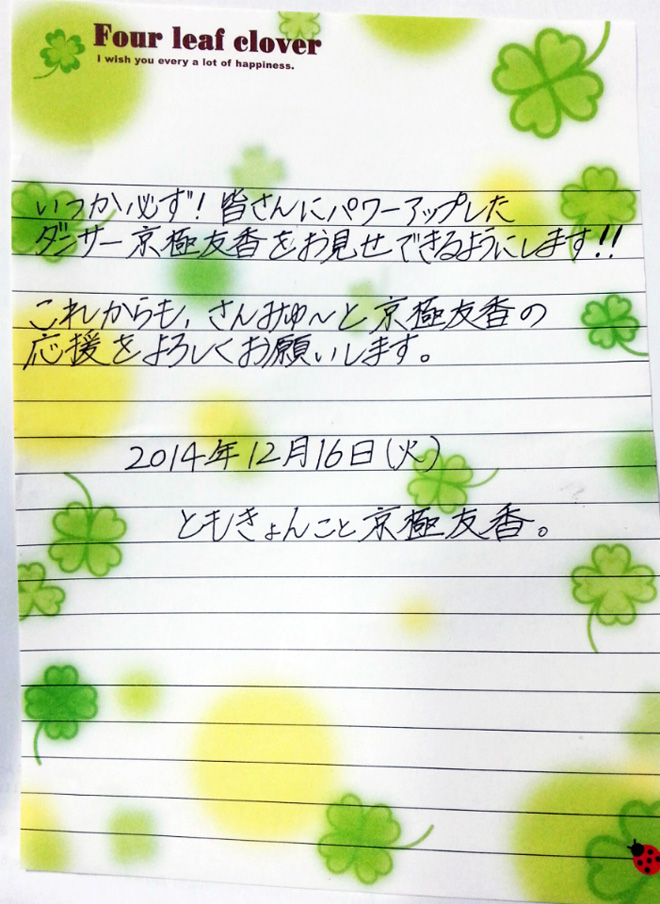 Four leaf clover
I wish you every a lot of happiness.
いつか必ず！皆さんにパワーアップした
ダンサー京極友香をお見せできるようにします！！
これからも、さんみゅ〜と京極友香の
応援をよろしくお願いします。
2014年12月16日(火)
ともきょんこと京極友香。